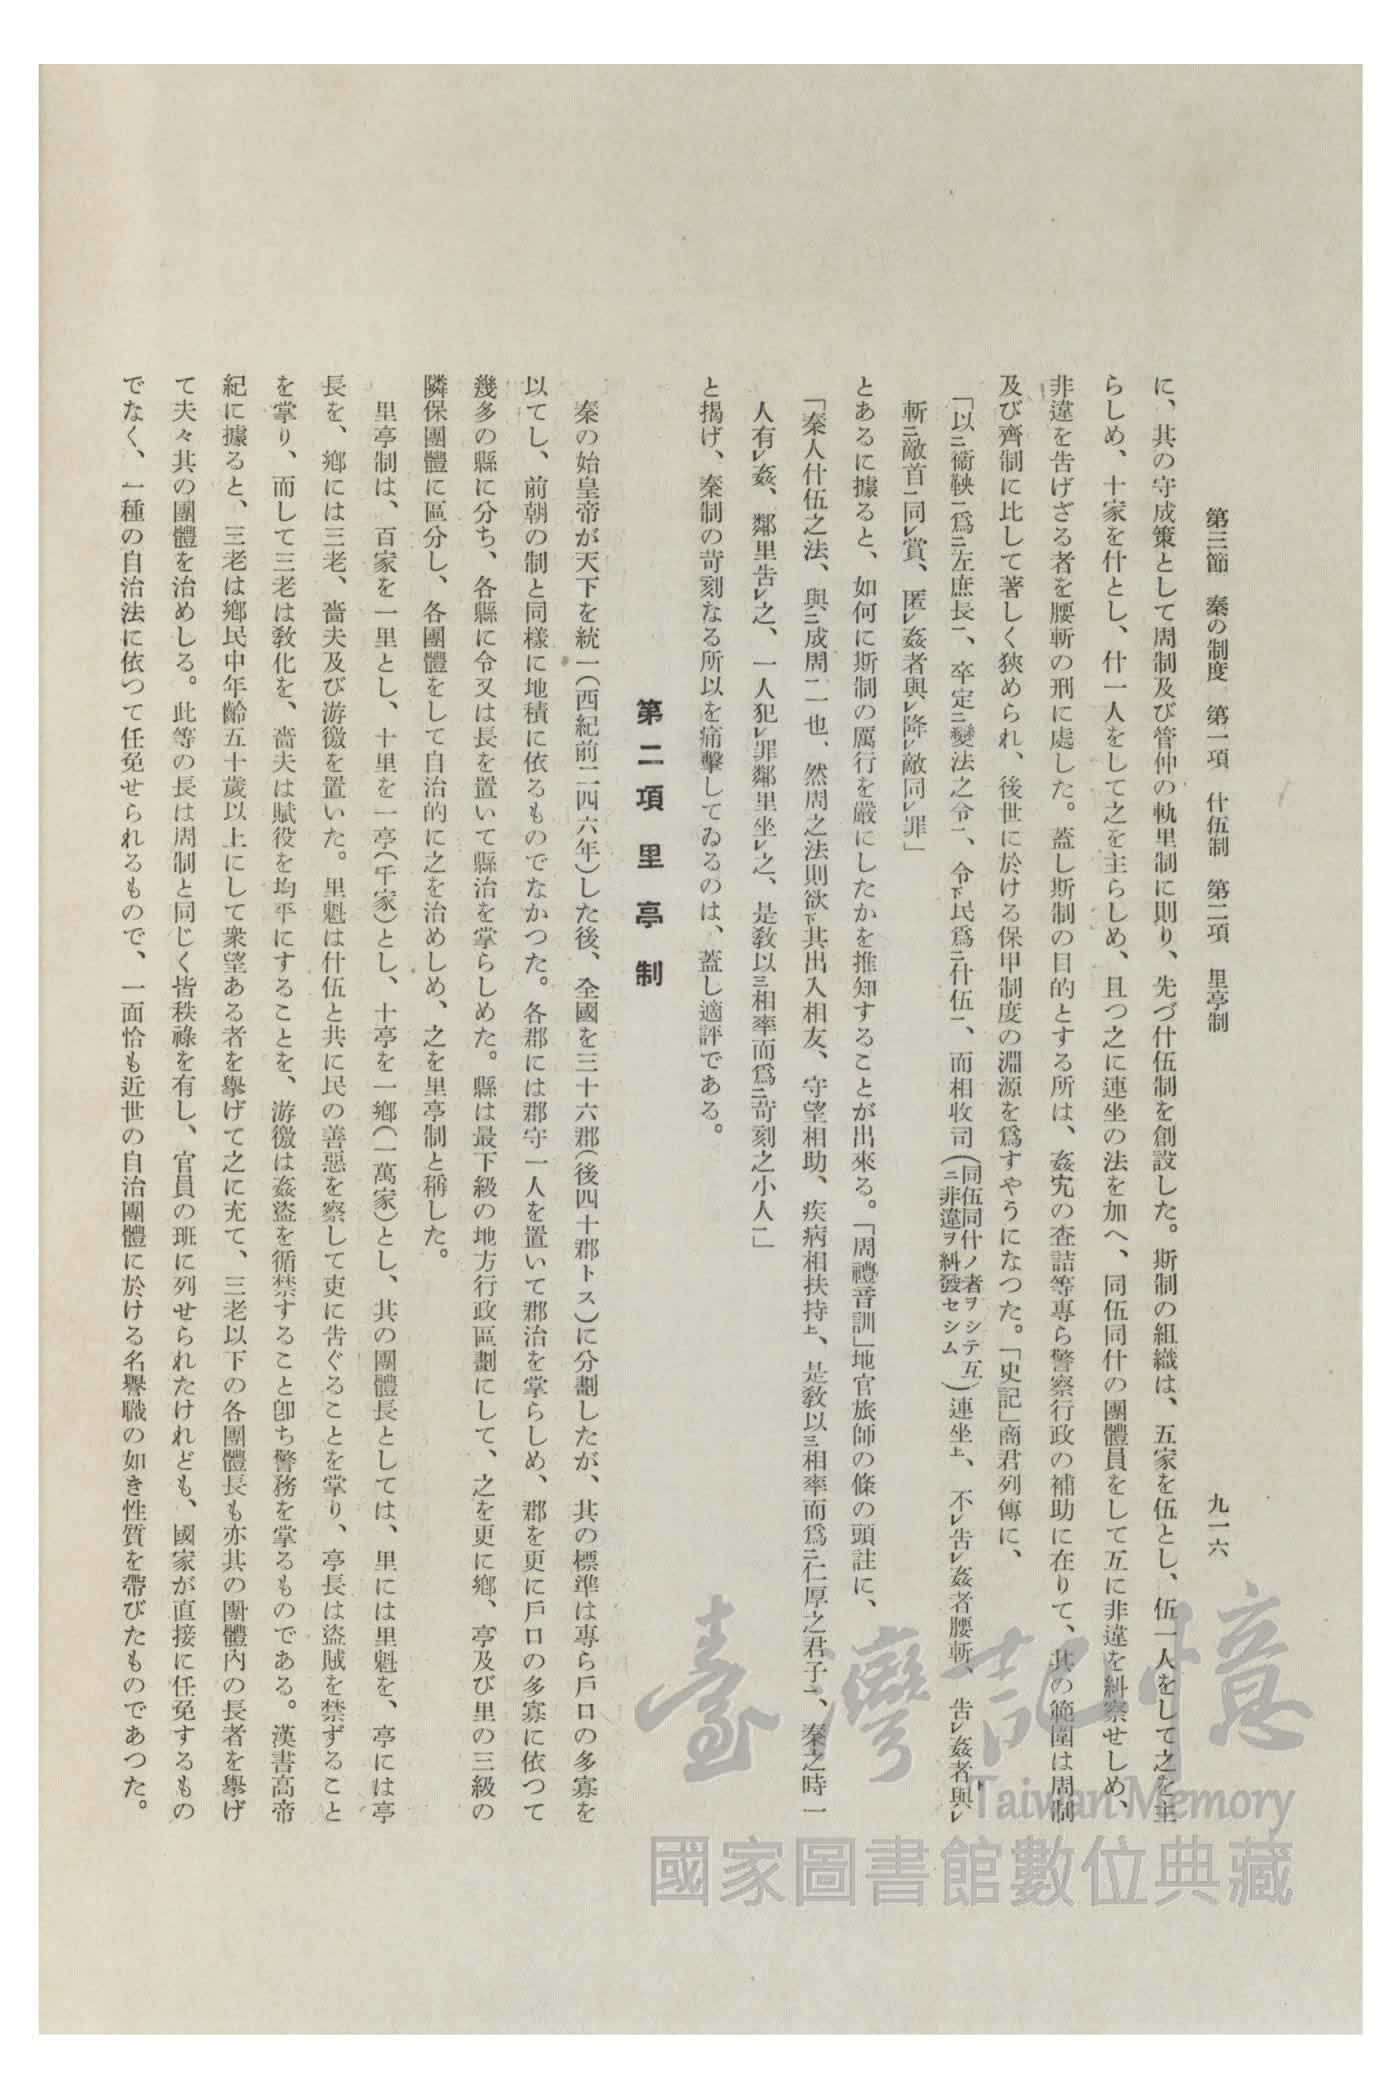 第三節　秦の制度　第一項　什伍制　第二項　里亭制　九一六
に、其の守成策として周制及び管仲の軌里制に則り、先づ什伍制を創設した。斯制の組織は、五家を伍とし、伍一人をして之を主
らしめ、十家を什とし、什一人をして之を主らしめ、且つ之に連坐の法を加へ、同伍同什の團體員をして互に非違を糾察せしめ、
非違を告げざる者を腰斬の刑に處した。蓋し斯制の目的とする所は、姦宄の査詰等專ら警察行政の補助に在りて、其の範圍は周制
及び齊制に比して著しく狹められ、後世に於ける保甲制度の淵源を爲すやうになつた。「史記」商君列傳に、
「以ニ衞鞅一爲ニ左庶長一、卒定ニ變法之令一、令下民爲ニ什伍一、而相收司(同伍同什ノ者ヲシテ互ニ非違ヲ糾發セシム)連坐上、不レ告レ姦者腰斬、告レ姦者與レ
斬ニ敵首一同レ賞、匿レ姦者與レ降レ敵同レ罪」
とあるに據ると、如何に斯制の厲行を嚴にしたかを推知することが出來る。「周禮音訓」地官旅師の條の頭註に、
「秦人什伍之法、與ニ成周一一也、然周之法則欲下其出入相友、守望相助、疾病相扶持上、是敎以三相率而爲ニ仁厚之君子一、秦之時一
人有レ姦、鄰里告レ之、一人犯レ罪鄰里坐レ之、是敎以三相率而爲ニ苛刻之小人一」
と揭げ、秦制の苛刻なる所以を痛擊してゐるのは、蓋し適評である。
第二項　里亭制
秦の始皇帝が天下を統一(西紀前二四六年)した後、全國を三十六郡(後四十郡トス)に分劃したが、其の標準は專ら戶口の多寡を
以てし、前朝の制と同樣に地積に依るものでなかつた。各郡には郡守一人を置いて郡治を掌らしめ、郡を更に戶口の多寡に依つて
幾多の縣に分ち、各縣に令又は長を置いて縣治を掌らしめた。縣は最下級の地方行政區劃にして、之を更に鄕、亭及び里の三級の
隣保團體に區分し、各團體をして自治的に之を治めしめ、之を里亭制と稱した。
里亭制は、百家を一里とし、十里を一亭(千家)とし、十亭を一鄕(一萬家)とし、其の團體長としては、里には里魁を、亭には亭
長を、鄕には三老、嗇夫及び游徼を置いた。里魁は什伍と共に民の善惡を察して吏に告ぐることを掌り、亭長は盜賊を禁ずること
を掌り、而して三老は敎化を、嗇夫は賦役を均平にすることを、游徼は姦盜を循禁すること卽ち警務を掌るものである。漢書高帝
紀に據ると、三老は鄕民中年齡五十歲以上にして衆望ある者を擧げて之に充て、三老以下の各團體長も亦其の團體內の長者を擧げ
て夫々其の團體を治めしる。此等の長は周制と同じく皆秩祿を有し、官員の班に列せられたけれども、國家が直接に任免するもの
でなく、一種の自治法に依つて任免せられるもので、一面恰も近世の自治團體に於ける名譽職の如き性質を帶びたものであつた。
臺灣記憶
Taiwan Memory
國家圖書館數位典藏